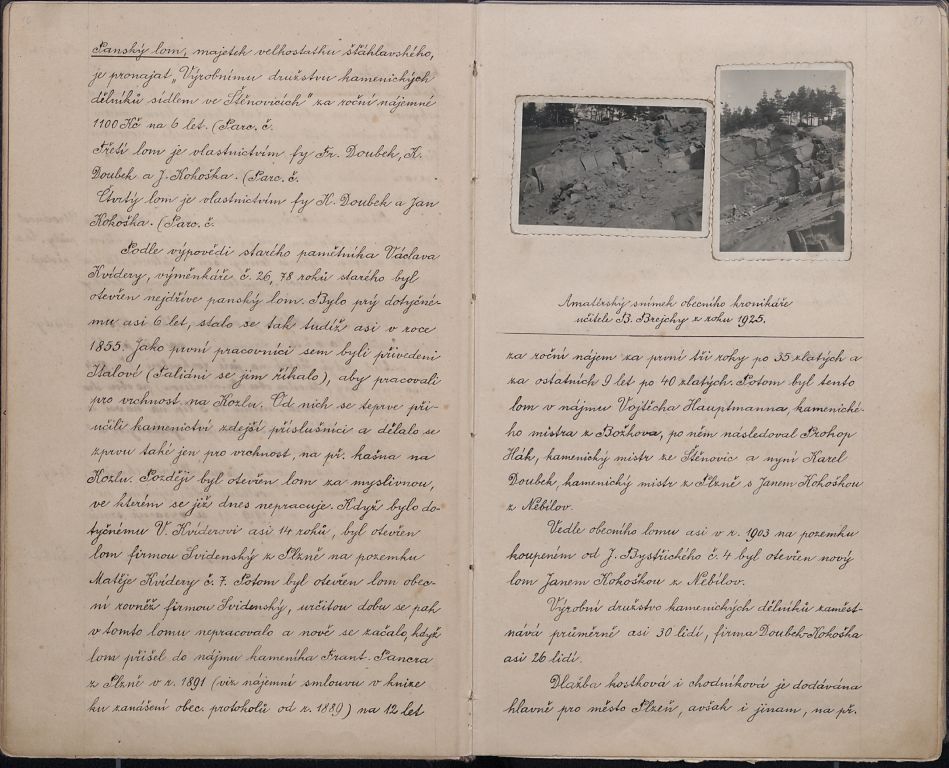 Panský lom, majetek velkostatku šťáhlavského,
je pronajat „Výrobnímu družstvu kamenických
dělníků sídlem ve Štěnovicích" za roční nájemné
1100 Kč na 6 let. (Parc. č.
Třetí lom je vlastnictvím fy Fr. Doubek, K.
Doubek a J. Kohoška. (Parc. č.
Čtvrtý lom je vlastnictvím fy K. Doubek a Jan
Kohoška. (Parc. č.
Podle výpovědi starého pamětníka Václava
Kvídery, výměnkáře č. 26, 78 roků starého byl
otevřen nejdříve panský lom. Bylo prý dotyčné-
mu asi 6 let, stalo se tak tudíž asi v roce
1855. Jako první pracovníci sem byli přivedeni
Italové (Taliáni se jim říkalo), aby pracovali
pro vrchnost na Kozlu. Od nich se teprve při-
učili kamenictví zdejší příslušníci a dělalo se
zprvu také jen pro vrchnost, na př. kašna na
Kozlu. Později byl otevřen lom za myslivnou,
ve kterém se již dnes nepracuje. Když bylo do-
tyčnému V. Kvíderovi asi 14 roků, byl otevřen
lom firmou Svidenský z Plzně na pozemku
Matěje Kvídery č. 7. Potom byl otevřen lom obec-
ní rovněž firmou Svidenský, určitou dobu se pak
v tomto lomu nepracovalo a nově se začalo, když
lom přišel do nájmu kameníka Frant. Pancra
z Plzně v r. 1891 (viz nájemní smlouvu v knize
ku zanášení obec. protokolů od r. 1889) na 12 let
Amatérský snímek obecního kronikáře
učitele B. Brejchy z roku 1925.
za roční nájem za první tři roky po 35 zlatých a
za ostatních 9 let po 40 zlatých. Potom byl tento
lom v nájmu Vojtěcha Hauptmanna, kamenické-
ho mistra z Božkova, po něm následoval Prokop
Hák, kamenický mistr ze Štěnovic a nyní Karel
Doubek, kamenický mistr z Plzně s Janem Kohoškou
z Nebílov.
Vedle obecního lomu asi v r. 1903 na pozemku
koupeném od J. Bystřického č. 4 byl otevřen nový
lom Janem Kohoškou z Nebílov.
Výrobní družstvo kamenických dělníků zaměst-
nává průměrně asi 30 lidí, firma Doubek-Kohoška
asi 26 lidí.
Dlažba kostková i chodníková je dodávána
hlavně pro město Plzeň, avšak i jinam, na př.